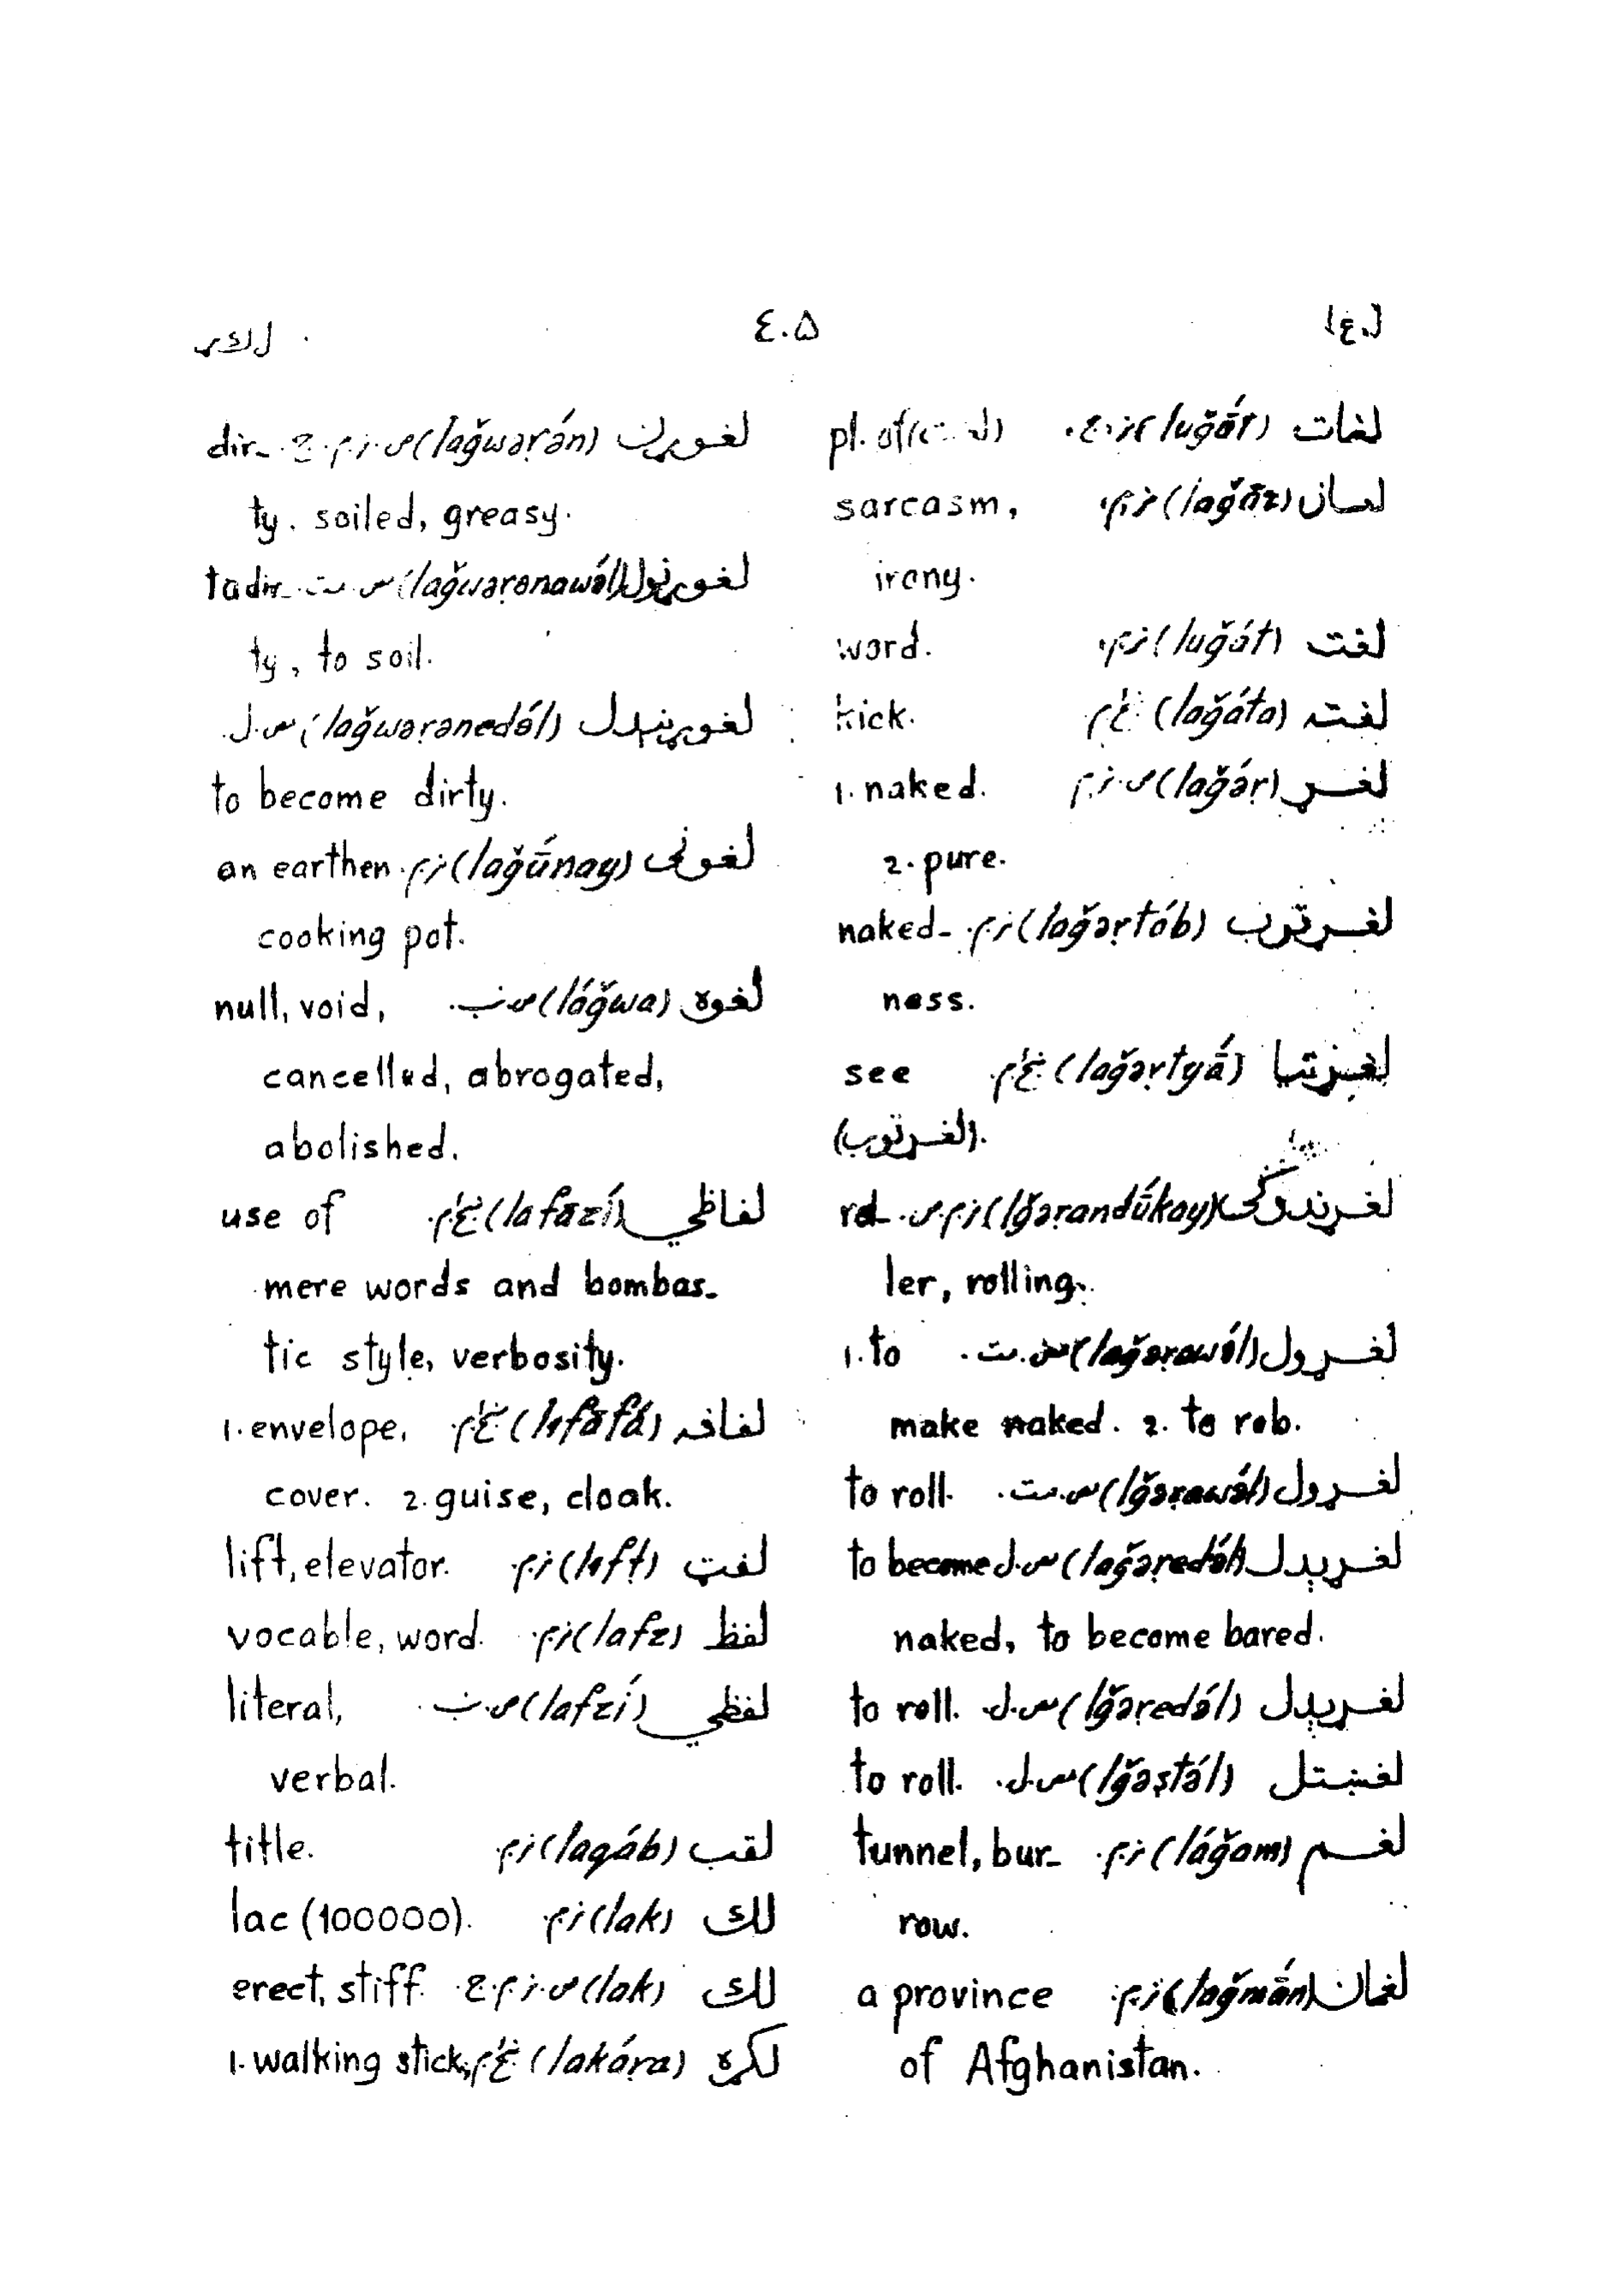 لغا
٤٠۵
لکړ
لغات (luğā́t) ز.ج. pl. of
(lağāz) sarcasm,
irony.
لغت (luğát) ز.م. word.
لغته (lağáta) ښځ.م. kick.
لغړ (lağáṛ) ص.ز.م. 1. naked.
2. pure.
لغړتوب (lağəṛtób) ز.م. naked-
ness.
لغړتيا (lağəṛtyā́) ښځ.م. see
(لغړتوب).
لغړندوکی (lğəṛandū́kay) ز.م.ص. rol-
ler, rolling.
لغړول (lağəṛawə́l) مص.مت. 1. to
make naked. 2. to rob.
لغړول (lğəṛawə́l) مص.مت. to roll.
لغړېدل (lağəṛedə́l) مص.ل. to become
naked, to become bared.
لغړېدل (lğəṛedə́l) مص.ل. to roll.
لغښتل (lğəṣtə́l) مص.ل. to roll.
لغم (láğam) ز.م. tunnel, bur-
row.
لغمان (lağmā́n) ز.م. a province
of Afghanistan.
لغوړن (lağwəṛə́n) ص.ز.م.ج. dir-
ty. soiled, greasy.
لغوړنول (lağwəṛənawə́l) مص.مت. to dir-
ty, to soil.
لغوړنېدل (lağwəṛənedə́l) مص.ل.
to become dirty.
لغونی (lağū́nay) ز.م. an earthen
cooking pot.
لغوه (láğwa) ص.نب. null, void,
cancelled, abrogated,
abolished.
لفاظي (lafāzí) ښځ.م. use of
mere words and bombas-
tic style, verbosity.
لفافه (lifāfá) ښځ.م. 1. envelope,
cover. 2. guise, cloak.
لفټ (lifṭ) ز.م. lift, elevator.
لفظ (lafz) ز.م. vocable, word.
لفظي (lafzí) ص.نب. literal,
verbal.
لقب (laqáb) ز.م. title.
لك (lak) ز.م. lac (100000).
لك (lak) ص.ز.م.ج. erect, stiff.
لکړه (lakáṛa) ښځ.م. 1. walking stick,